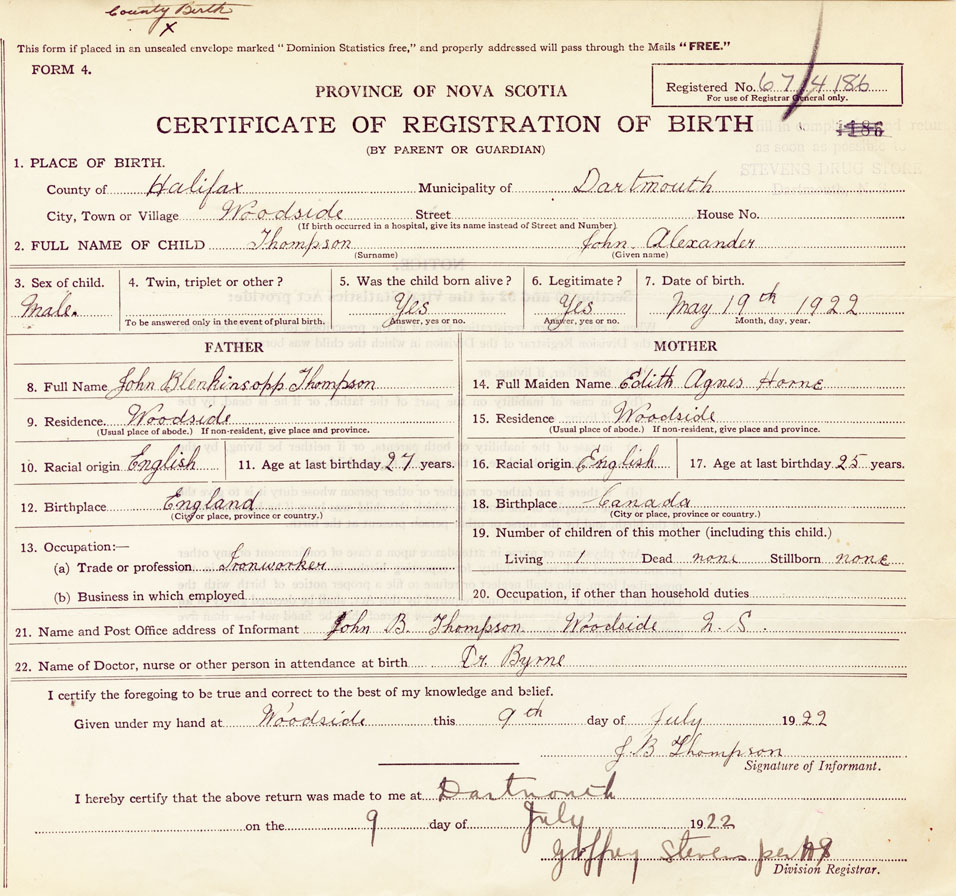 County Birth
X
This form if placed in an unsealed envelope marked "Dominion Statistics free," and properly addressed will pass through the Mails "FREE."
FORM 4.
Registered No. 67/4186
For use of Registrar General only.
PROVINCE OF NOVA SCOTIA
CERTIFICATE OF REGISTRATION OF BIRTH
4186
(BY PARENT OR GUARDIAN)
as soon as possible to
STEVENS DRUG STORE
Dartmouth, N. S.
1. PLACE OF BIRTH.
County of Halifax Municipality of Dartmouth
City, Town or Village Woodside Street House No.
(If birth occurred in a hospital, give its name instead of Street and Number)
2. FULL NAME OF CHILD Thompson John Alexander
(Surname) (Given name)
3. Sex of child. 4. Twin, triplet or other? 5. Was the child born alive? 6. Legitimate? 7. Date of birth.
Male. Yes Yes May 19th 1922
To be answered only in the event of plural birth. Answer, yes or no. Answer, yes or no. Month, day, year.
FATHER MOTHER
8. Full Name John Blenkinsopp Thompson 14. Full Maiden Name Edith Agnes Horne
9. Residence. Woodside 15. Residence Woodside
(Usual place of abode.) If non-resident, give place and province. (Usual place of abode.) If non-resident, give place and province.
10. Racial origin English 11. Age at last birthday 27 years. 16. Racial origin English 17. Age at last birthday 25 years.
12. Birthplace England 18. Birthplace Canada
(City or place, province or country.) (City or place, province or country.)
13. Occupation:— 19. Number of children of this mother (including this child.)
(a) Trade or profession Ironworker Living 1 Dead none Stillborn none
(b) Business in which employed 20. Occupation, if other than household duties
21. Name and Post Office address of Informant John B. Thompson Woodside S.
22. Name of Doctor, nurse or other person in attendance at birth Dr. Byrne
I certify the foregoing to be true and correct to the best of my knowledge and belief.
Given under my hand at Woodside this 9th day of July 1922
J B Thompson
Signature of Informant.
I hereby certify that the above return was made to me at Dartmouth
on the 9 day of July 1922
Geoffrey Stevens per
Division Registrar.